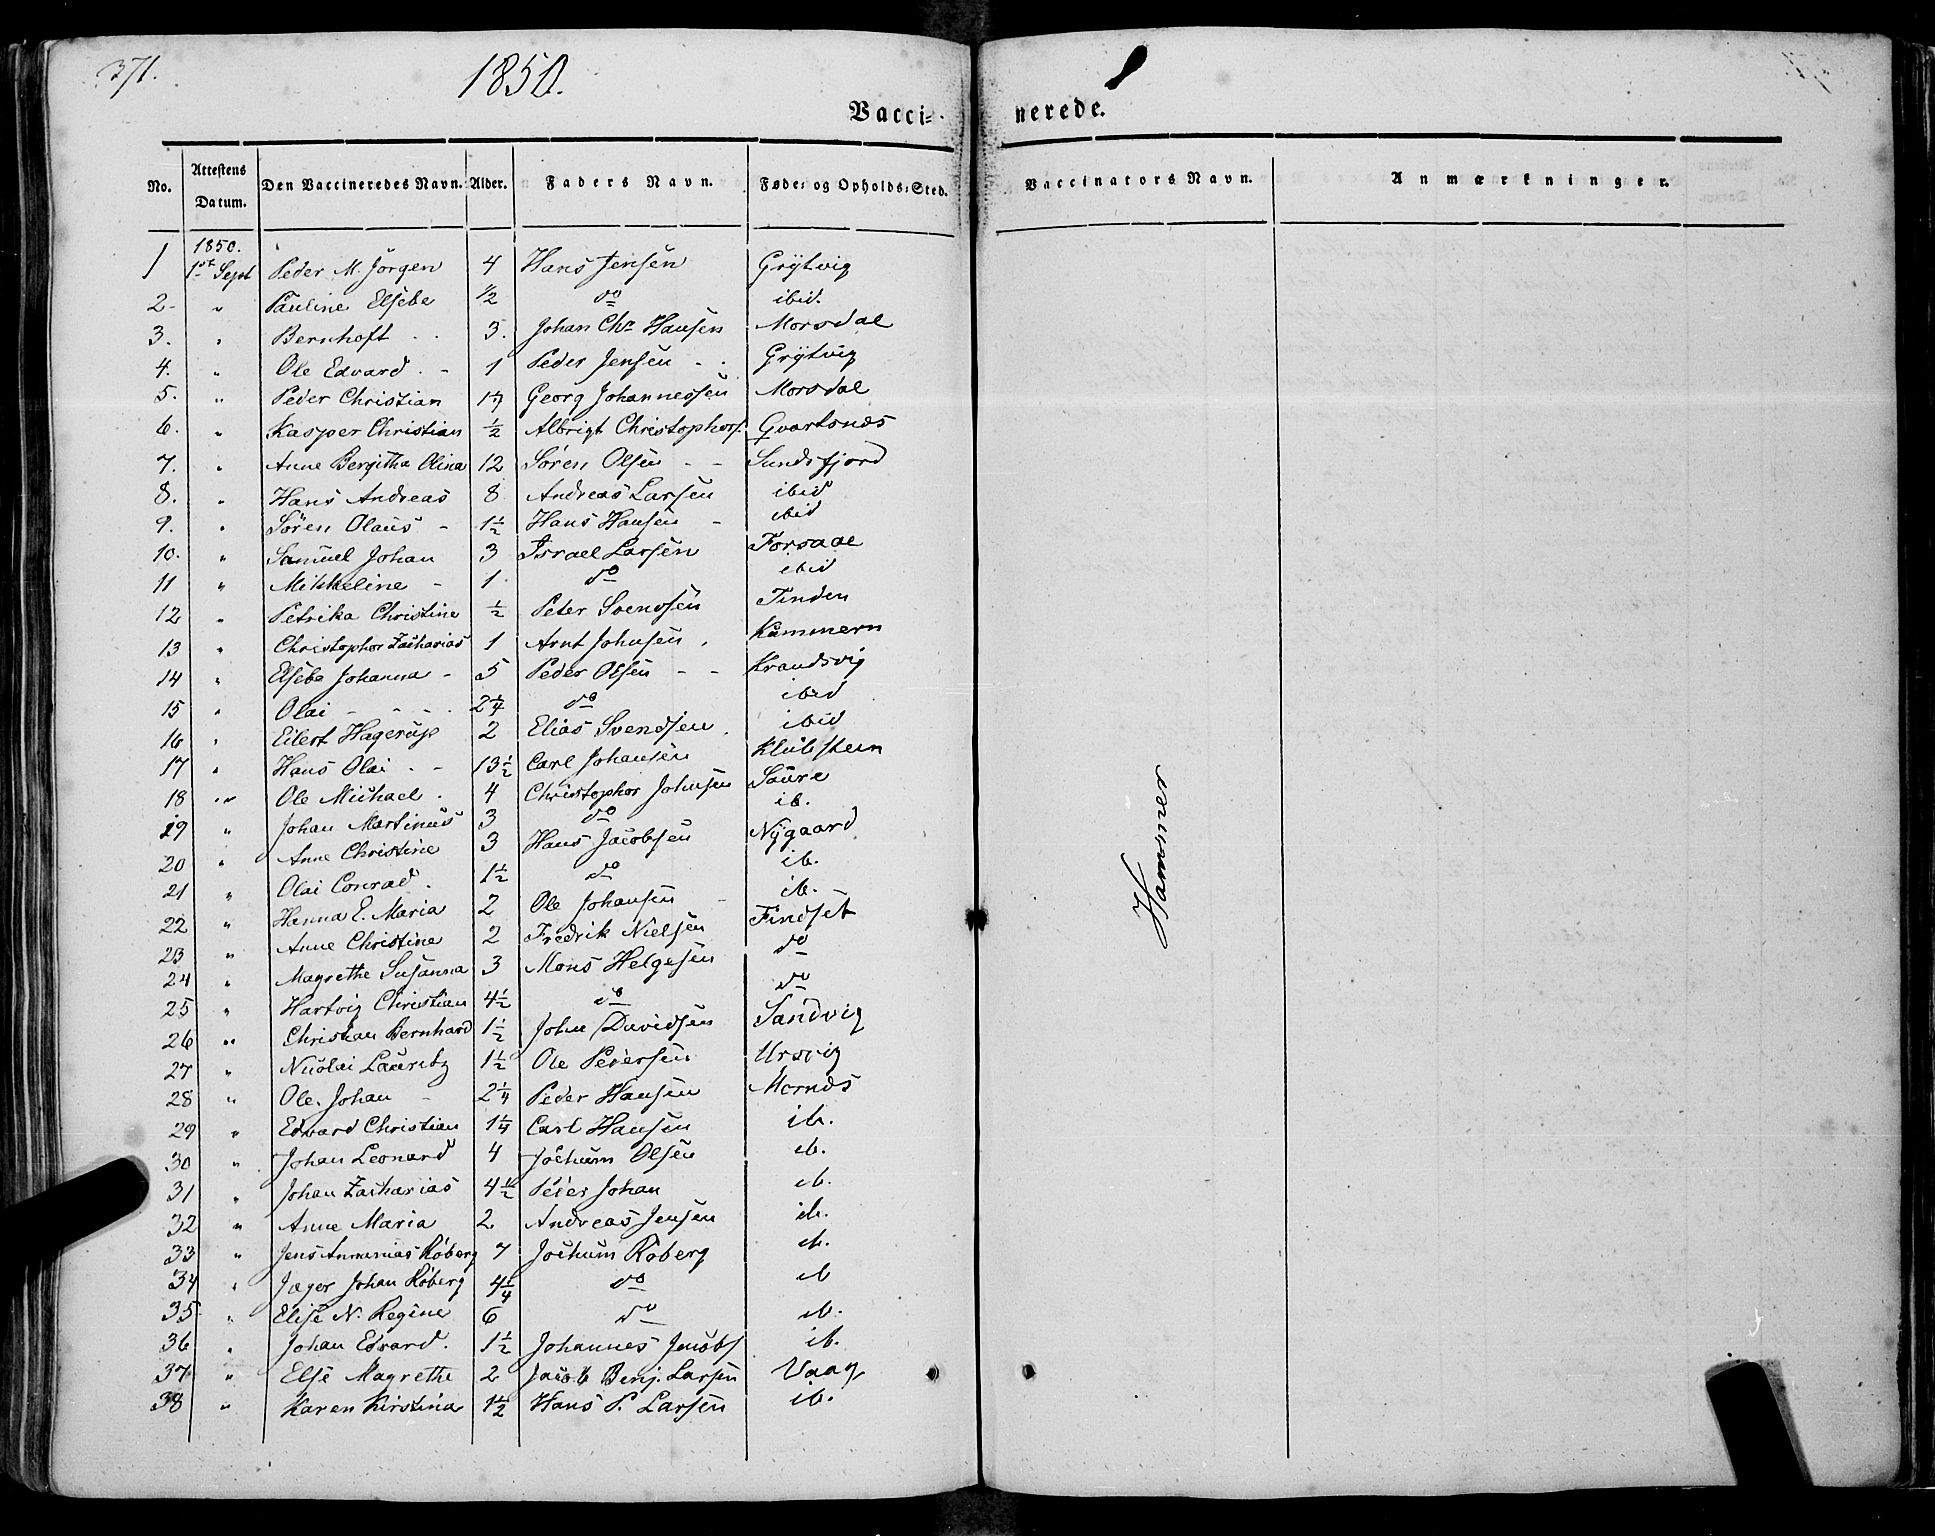 371.
1850.
Vacci-
nerede.
No. Attestens Datum. Den Vaccineredes Navn. Alder. Faders Navn. Føde- og Opholds-Sted.
Vaccinators Navn. Anmærkninger.
1850.
1 1st Sept Peder M. Jörgen 4 Hans Jensen Grÿtvig
2 " Pauline Elsebe 1/2 do ibid.
3. " Bernhoft 3. Johan Chr. Hansen Morsdal
4. " Ole Edvard 1 Peder Jensen Grÿtvig
5. " Peder Christian Georg Johannessen Morsdal
6. " Kasper Christian 1/2 Albrigt Christophers. Qvartsnæs
7. " Anne Bergitha Olina 12 Sören Olsen Sundsfjord
8. " Hans Andreas 8 Andreas Larsen ibid
9. " Sören Olaus 1 1/2 Hans Hansen ibid
10. " Samuel Johan 3 Israel Larsen Forsaae
11 " Mikkeline 1. do ibid
12 " Petrika Christine 1/2 Peter Svendsen Tinden
13 " Christopher Zacharias 1 Arnt Johnsen Kammern
14 " Elsebe Johanna 5 Peder Olsen Krandsvig
15 " Olai 2 1/4 do ibid
16 " Eilert Hagerup 2 Elias Svendsen ibid
17 " Hans Olai 13 1/2 Carl Johansen
18 " Ole Michael 4 Christopher Johnsen Saure
19 " Johan Martinus 3 do ib.
20 " Anne Christine 3 Hans Jacobsen Nÿgaard
21 " Olai Conrad 1 1/2 do ib.
22 " Hanna E. Maria 2 Ole Johansen ib.
23 " Anne Christine 2 Fredrik Nielsen Findset
24 " Magrethe Susanna 3 Mons Helgesen do
25 " Hartvig Christian 4 1/2 do do
26 " Christian Bernhard 1 1/2 John Davidsen Sandvig
27 " Nicolai Lauritz 1 1/2 Ole Pedersen Ursvig
28 " Ole Johan 2 1/4 Peder Hansen Mernæs
29 " Edvard Christian 1 1/4 Carl Hansen ib.
30 " Johan Leonard 4 Jochum Olsen ib.
31 " Johan Zacharias 4 1/2 Peder Johan ib.
32 " Anne Maria 2 Andreas Jensen ib.
33 " Jens Annanias Röberg 7 Jochum Röberg ib.
34 " Jæger Johan Röberg 4 1/4 do ib
35 " Elise N. Regine 6 do ib.
36 " Johan Edvard. 1 1/2 Johannes Jacobs ib.
37 " Else Magrethe 2 Jacob Benj. Larsen Vaag
38 " Karen Kirstina 1 1/2 Hans P. Larsen ib.
Hammer